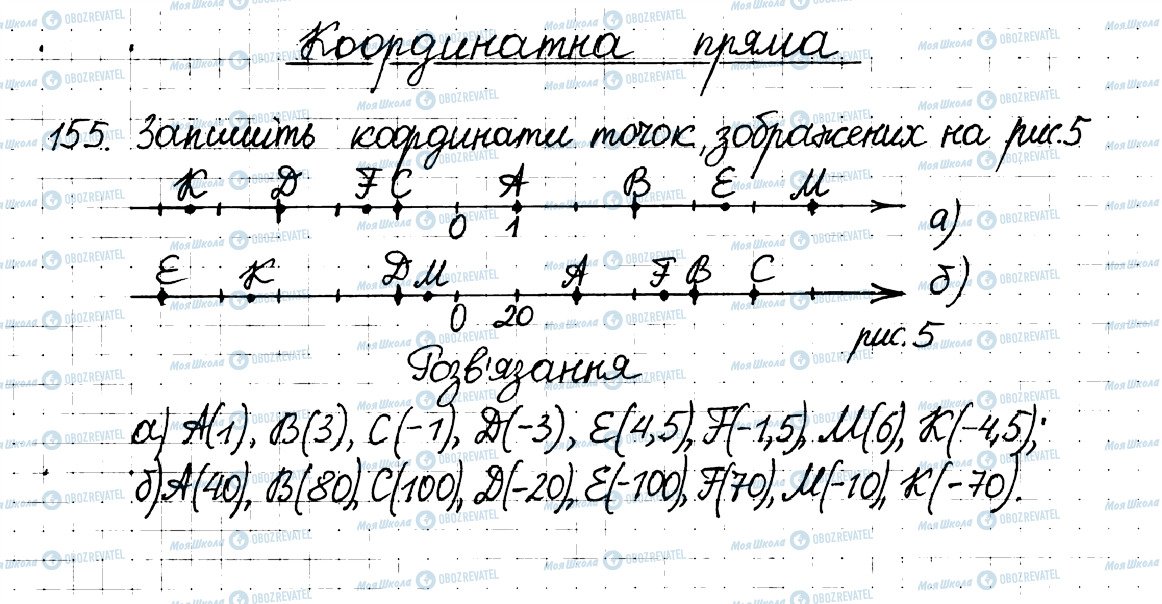 Координатна пряма
155. Запишіть координати точок, зображених на рис.5
K D F C A B E M
0 1 а)
E K D M A F B C б)
0 20
рис. 5
Розв'язання
а) A(1), B(3), C(-1), D(-3), E(4,5), F(-1,5), M(6), K(-4,5);
б) A(40), B(80), C(100), D(-20), E(-100), F(70), M(-10), K(-70).
Моя Школа OBOZREVATEL